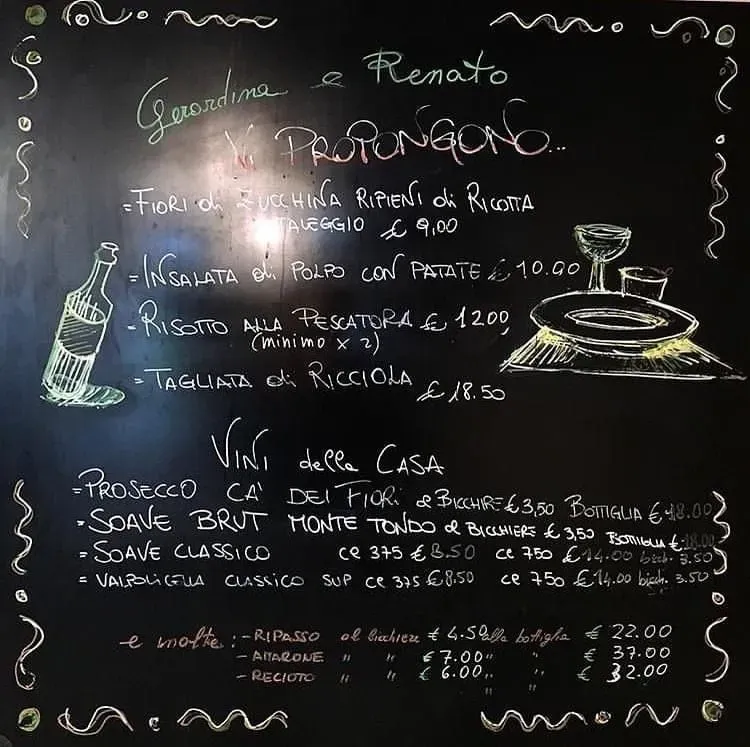 Gerardina e Renato
Vi PROPONGONO...
=FIORI di ZUCCHINA RIPIENI di RICOTTA
TALEGGIO € 9,00
=INSALATA di POLPO CON PATATE € 10.00
=RISOTTO ALLA PESCATORA € 12.00
(minimo x 2)
=TAGLIATA di RICCIOLA € 18.50
VINI della CASA
=PROSECCO CA' DEI FIORI al BICCHIRE € 3,50 BOTTIGLIA € 18.00
=SOAVE BRUT MONTE TONDO al BICCHIERE € 3,50 BOTTIGLIA € 18.00
=SOAVE CLASSICO cc 375 € 8.50 cc 750 € 14.00 bicch. 3.50
=VALPOLICELLA CLASSICO SUP cc 375 € 8,50 cc 750 € 14.00 bicch. 3.50
e inoltre: -RIPASSO al bicchiere € 4.50 alla bottiglia € 22.00
-AMARONE " " € 7.00 " " € 37.00
-RECIOTO " " € 6.00 " " € 32.00
" "